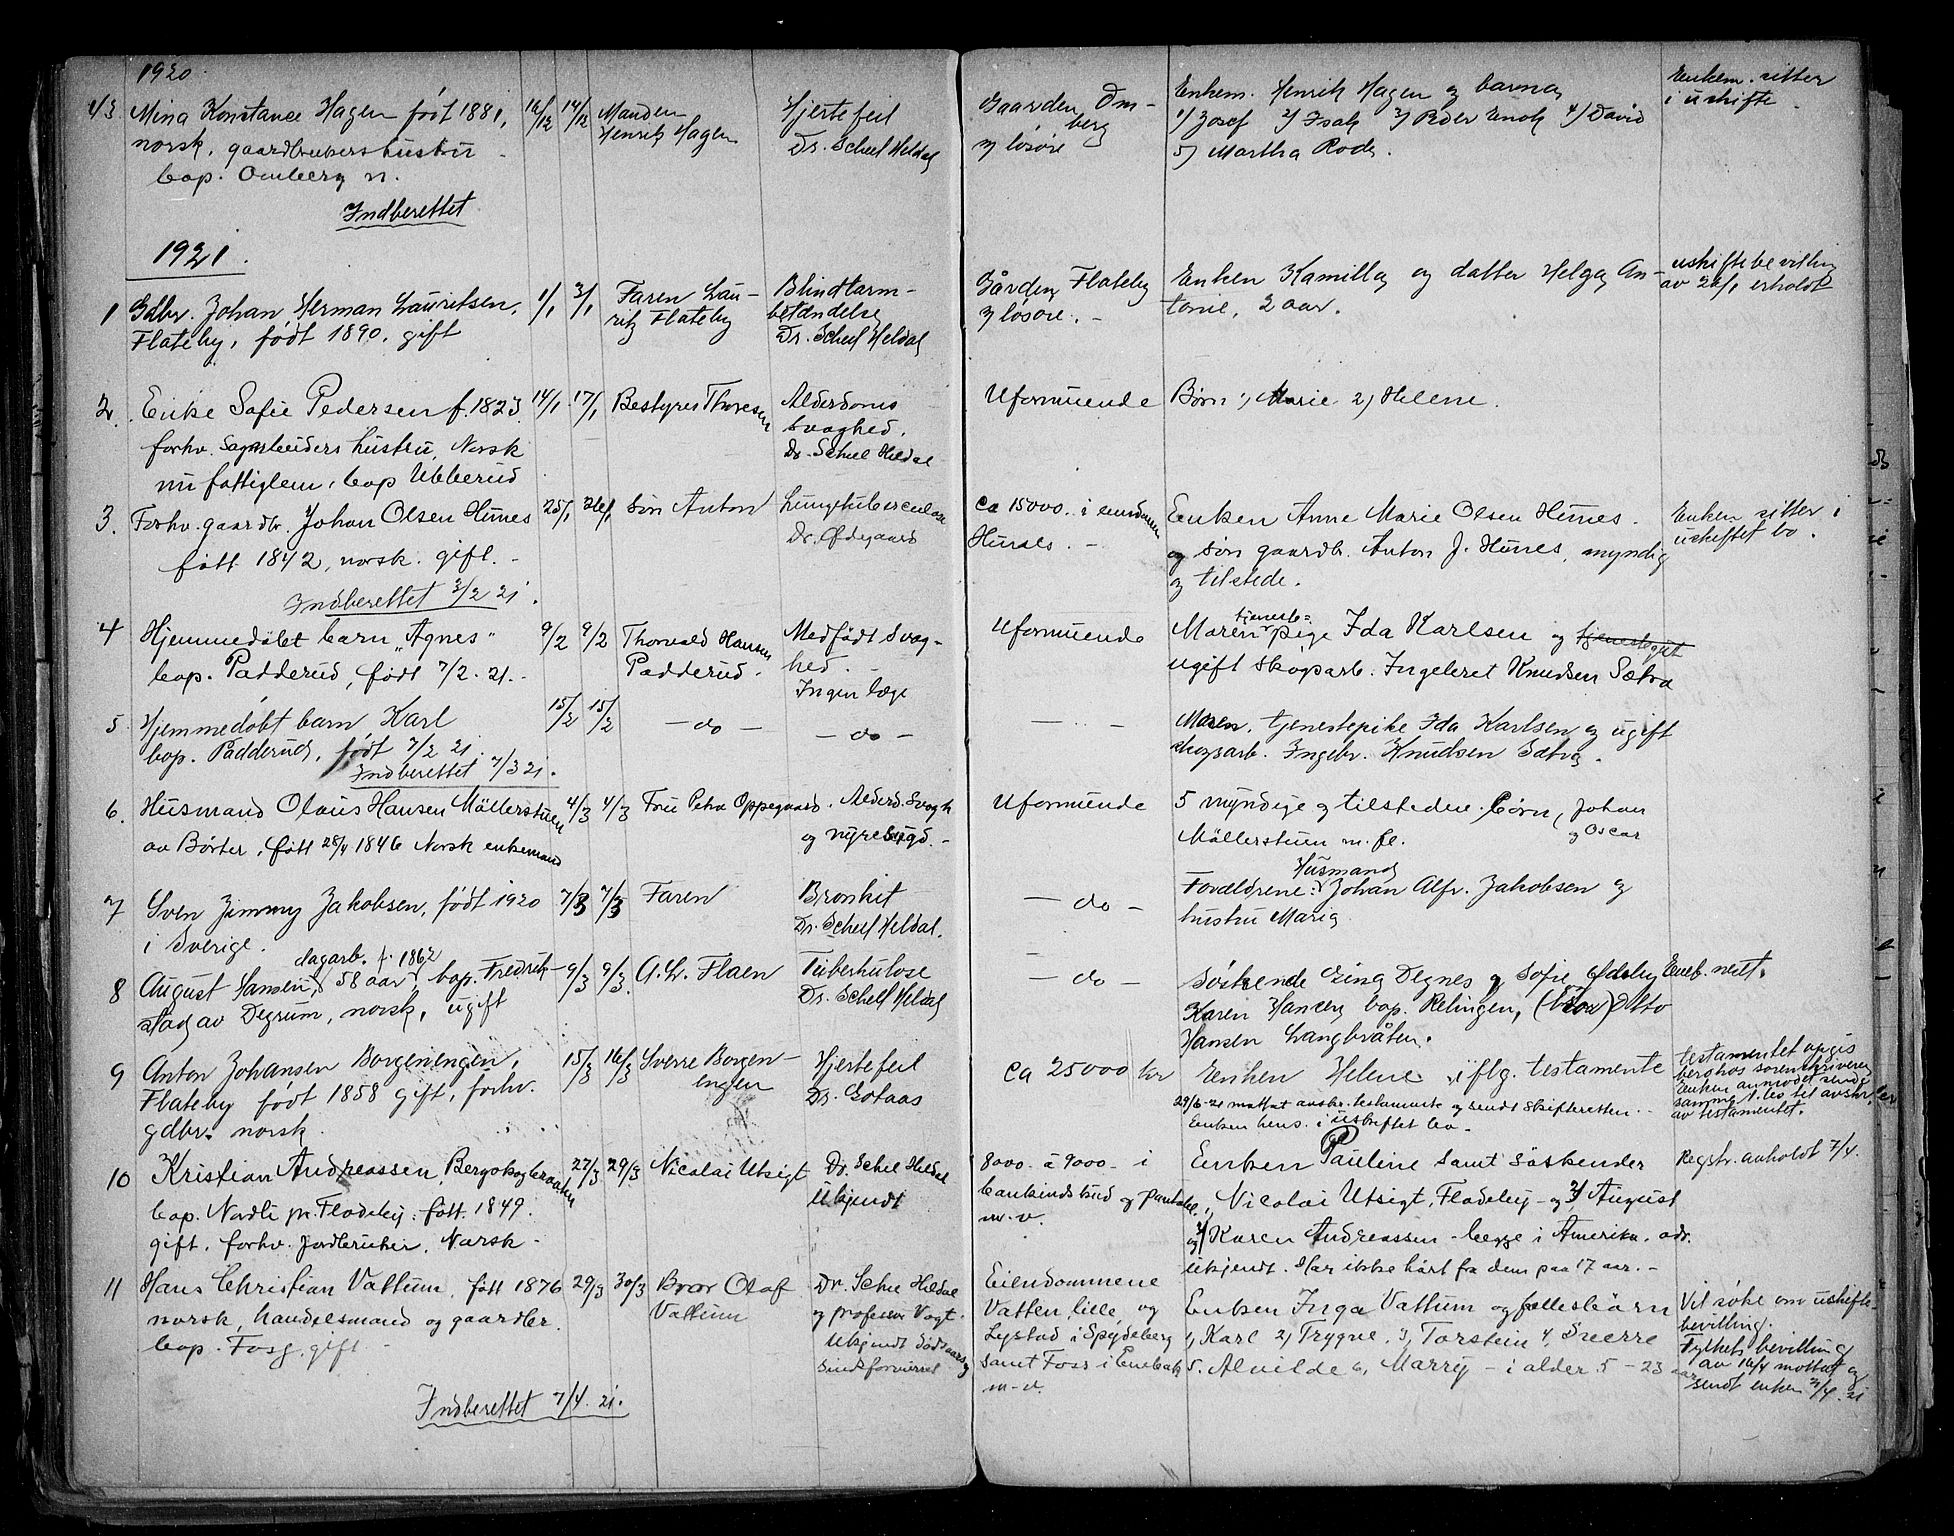 1920.
43 Mina Konstance Hagen født 1881, 12/12 14/12 Manden Hjertefeil Gaarden Om- Enkem. Henrik Hagen og barna Enkem. sitter
norsk, gaardbrukers hustru Henrik Hagen Dr. Scheel Heldal berg 1/ Josef 2/ Isak 3/ Peder Enok 4/ David i uskifte.
bop. Omberg n. og løsøre 5/ Martha
Indberettet
1921.
1 Gdbr. Johan Herman Lauritsen, 1/1 3/1 Faren Lau- Blindtarm- Gården Flateby Enken Kamilla og datter Helga An- uskiftebevilling
Flateby, født 1890. gift ritz Flateby betændelse og løsøre. - tonie, 2 aar. av 24/1 erholdt
Dr. Scheel Heldal
2. Enke Sofie Pedersen f. 1823. 14/1 17/1 Bestyrer Thoresen Alderdoms Uformuende Børn 1) Marie 2) Helene.
forhv. hustru, Norsk svaghed.
nu fattiglem, bop Ubberud Dr. Scheel Heldal
3. Forhv. gaardbr. Johan Olsen Hunes 25/1 26/1 Søn Anton Lungetuberculose Ca 15000. i eiendommen Enken Anne Marie Olsen Hunes. Enken sitter i
født 1842, norsk. gift. - Dr. Ødegaard og søn gaardb. Anton J. Hunes, myndig uskiftet bo.
Indberettet 3/2 21. og tilstede.
4 Hjemmedøbt barn "Agnes" 9/2 9/2 Thorvald Hansen Medfødt Svag- Uformuende Moren tjeneste= pige Ida Karlsen og
bop. Padderud, født 7/2. 21. - Padderud. hed. - ugift skogarb. Ingebret Knudsen Sætra
Ingen læge
5 Hjemmedøbt barn Karl 15/2 15/2 - do - - do - - " - Moren, tjenestepike Ida Karlsen og ugift
bop. Padderud, født 7/2 21. skogsarb. Ingebr. Knudsen Sætra.
Indberettet 7/3 21.
6. Husmand Olaus Hansen Møllerstuen 4/3 4/3 Fru Petra Oppegaard. Alderd. Svagh Uformuende 5 myndige og tilstedev. børn, Johan
av Børter, født 28/4 1846 Norsk enkemand og nyresygd. - Møllerstuen m. fl. og Oscar
7 Sven Jimmy Jakobsen, født 1920 7/3 7/3 Faren Bronkit - do - Forældrene: Husmand Johan Alfr. Jakobsen og
i Sverige. Dr. Scheel Heldal. hustru Maria
8 August Hansen, dagarb. f. 1862 58 aar, bop. Fredrik- 9/3 9/3. Flaen Tuberkulose - do - Søskende Degnes og Sofie
stad av Degrum, norsk, ugift Dr. Scheel Heldal Karen bop. Rælingen, (bror) Otto
Hansen Langbråten.
9 Anton Johansen Borgenengen, 15/3 16/3 Sverre Borgen- Hjertefeil Ca 25000 kr Enken Helene iflg. testamente testamentet opgis
Flateby født 1858 gift, forhv. engen Dr. 29/6-21 testamente og sendt Skifteretten. beror hos sorenskriveren
gdbr. norsk. Enken hens. i uskiftet bo - Enken anmodet sende
samme av testamentet.
10 Kristian Andreassen, 27/3 29/3 Nicolai Utsigt Dr. Scheel Heldal 8000. à 9000. - i Enken Pauline samt søskender Registr. avholdt 7/4.
bop. Nordli pr. Fladeby. født. 1849. Ukjendt og m. v. 1, Nicolai Utsigt, Fladeby - og 2/ August
gift, forhv. Jordbruker. Norsk - og 3/ Karen Andreassen - begge i Amerika. adr.
ukjendt. Har ikke hørt fra dem paa 17 aar. -
11 Hans Christian Vattum, født 1876 29/3 30/3 Bror Olaf Dr. Scheel Heldal Eiendommene Enken Inga Vattum og fællesbørn Vil søke om uskifte-
norsk, handelsmand og gaardbr. Vattum og professor Vogt. lille, og 1, Karl 2) Trygve, 3, Torstein 4, Sverre bevilling.
bop. Foss, gift - Ukjendt dødsaarsag Lystad i Spydeberg 5. Alvilde 6, Marry - i alder 5 - 23 aar bevilling
sindsforvirret samt Foss i Enebak av 16/4 mottat og
m. v. sendt enken 21/4 21
Indberettet 7/4. 21.